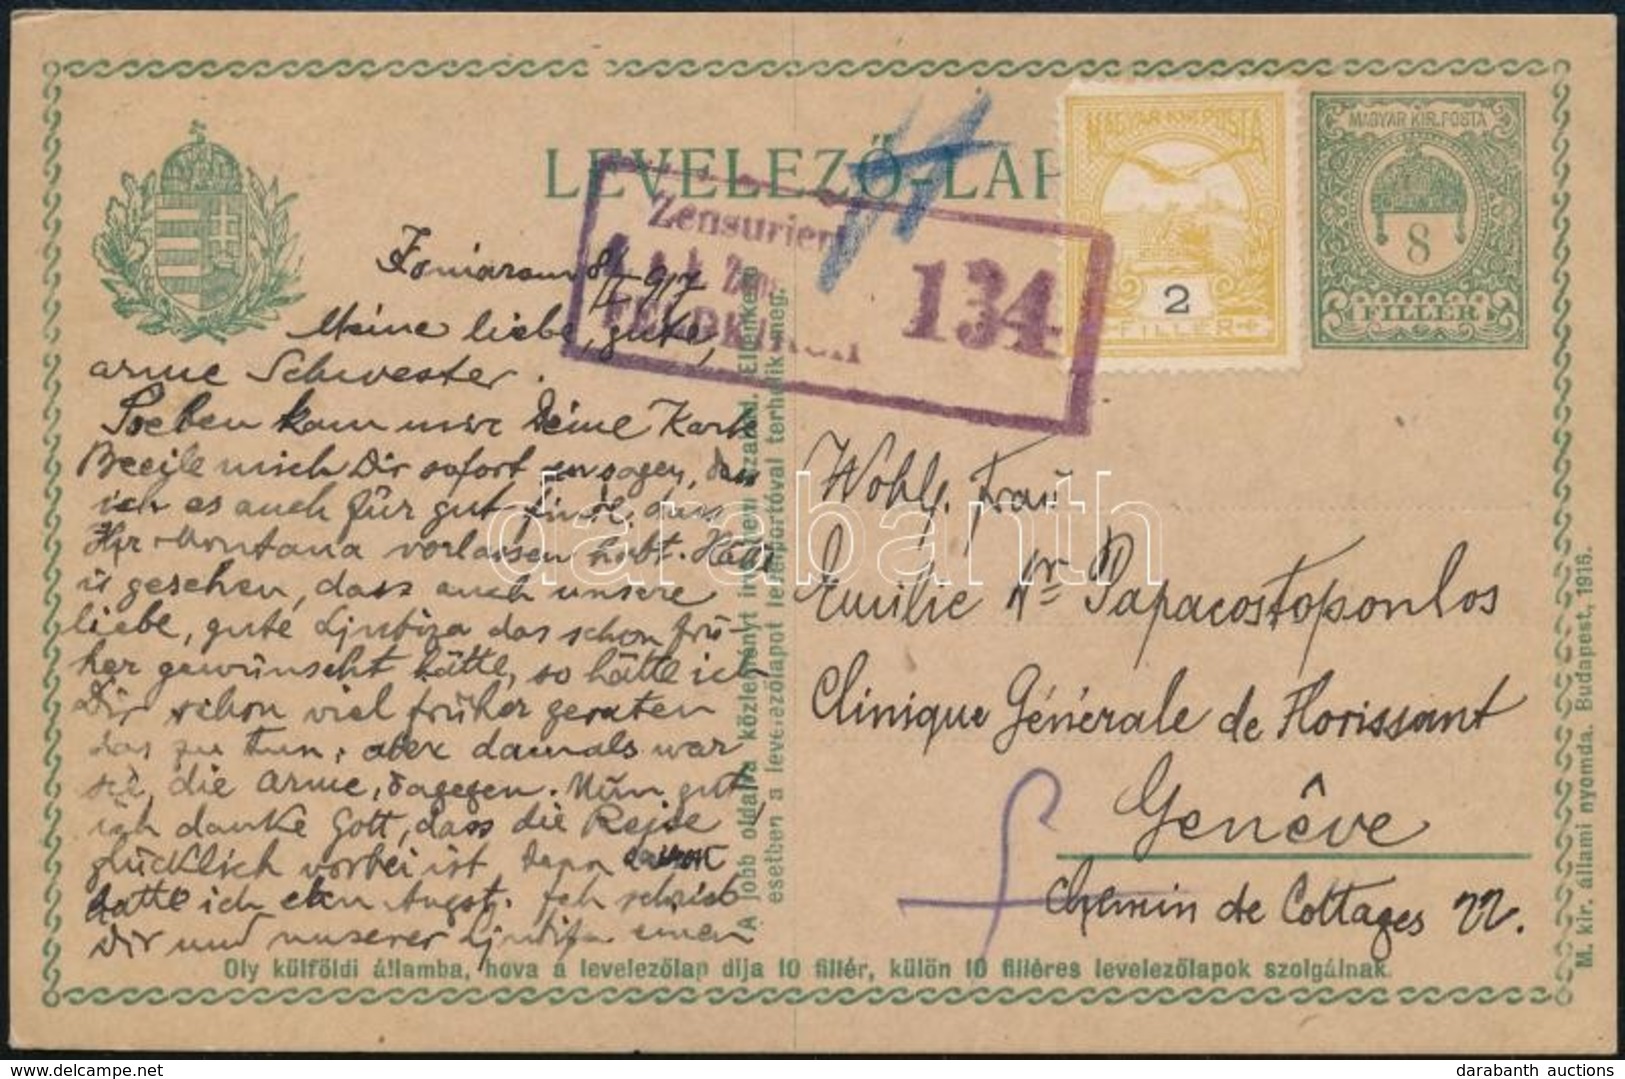 LEVELEZŐ-LAP
MAGYAR KIR. POSTA
2
FILLÉR
MAGYAR KIR. POSTA
8
FILLÉR
Zensuriert
k.u.k. Zens
FELDKIRCH
134
917
Meine liebe, gute,
arme Schwester.
Soeben kam mir Deine Karte
mich Dir sofort zu sagen, dass
ich es auch für gut finde, dass
Ihr Montana verlassen habt. Hätte
ich gesehen, dass auch unsere
liebe, gute Ljubiza das schon frü-
her gewünscht hätte, so hätte ich
Dir schon viel früher geraten
das zu tun, aber damals war
sie, die Arme, dagegen. Nun gut,
ich danke Gott, dass die Reise
glücklich vorbei ist, denn davor
hatte ich eben Angst. Ich schrieb
Dir und unserer Ljubiza einen
Wohlg. Frau
Emilie Dr Papacostopoulos
Clinique Générale de Florissant
Genêve
Chemin de Cottages 22.
A jobb oldalra közleményt irni nem szabad. Ellenkező
esetben a levelezőlapot levélportóval terhelik meg.
Oly külföldi államba, hova a levelezőlap dija 10 fillér, külön 10 filléres levelezőlapok szolgálnak.
M. kir. állami nyomda. Budapest, 1916.
darabanth
darabanth auctions